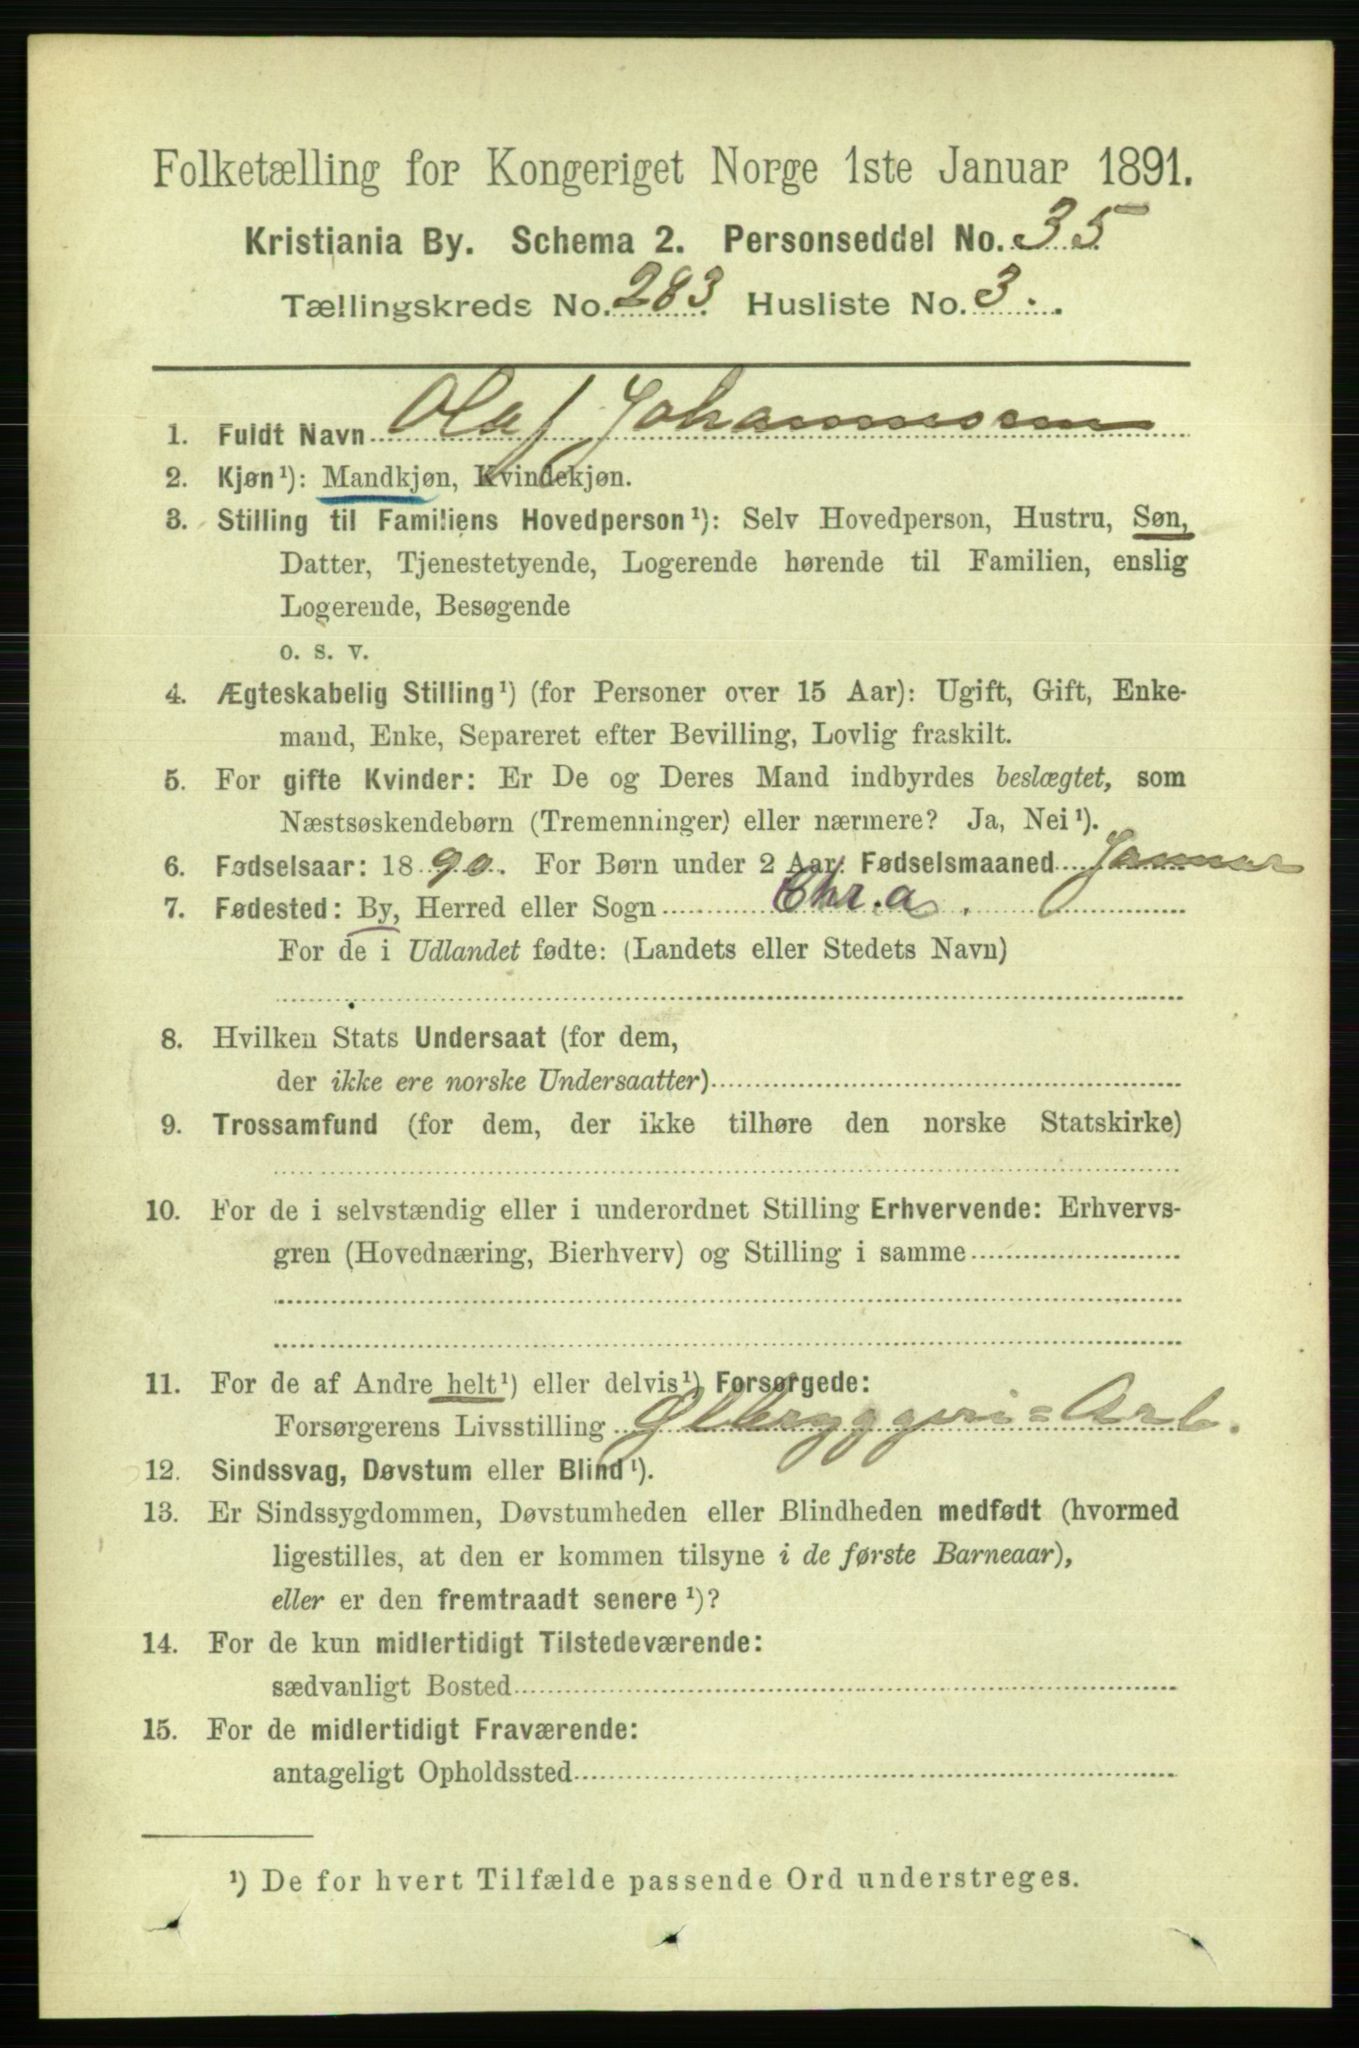 Folketælling for Kongeriget Norge 1ste Januar 1891.
Kristiania By. Schema 2. Personseddel No. 35
Tællingskreds No. 283 Husliste No. 3.
1. Fuldt Navn Olaf Johannesen
2. Kjøn¹): Mandkjøn, Kvindekjøn.
3. Stilling til Familiens Hovedperson¹): Selv Hovedperson, Hustru, Søn,
Datter, Tjenestetyende, Logerende hørende til Familien, enslig
Logerende, Besøgende
o. s. v.
4. Ægteskabelig Stilling¹) (for Personer over 15 Aar): Ugift, Gift, Enke-
mand, Enke, Separeret efter Bevilling, Lovlig fraskilt.
5. For gifte Kvinder: Er De og Deres Mand indbyrdes beslægtet, som
Næstsøskendebørn (Tremenninger) eller nærmere? Ja, Nei¹).
6. Fødselsaar: 1890. For Børn under 2 Aar: Fødselsmaaned Januar
7. Fødested: By, Herred eller Sogn Chr.a.
For de i Udlandet fødte: (Landets eller Stedets Navn)
8. Hvilken Stats Undersaat (for dem,
der ikke ere norske Undersaatter)
9. Trossamfund (for dem, der ikke tilhøre den norske Statskirke)
10. For de i selvstændig eller i underordnet Stilling Erhvervende: Erhvervs-
gren (Hovednæring, Bierhverv) og Stilling i samme
11. For de af Andre helt¹) eller delvis¹) Forsørgede:
Forsørgerens Livsstilling Ølbryggeri=Arb.
12. Sindssvag, Døvstum eller Blind¹).
13. Er Sindssygdommen, Døvstumheden eller Blindheden medfødt (hvormed
ligestilles, at den er kommen tilsyne i de første Barneaar),
eller er den fremtraadt senere¹)?
14. For de kun midlertidigt Tilstedeværende:
sædvanligt Bosted
15. For de midlertidigt Fraværende:
antageligt Opholdssted
¹) De for hvert Tilfælde passende Ord understreges.